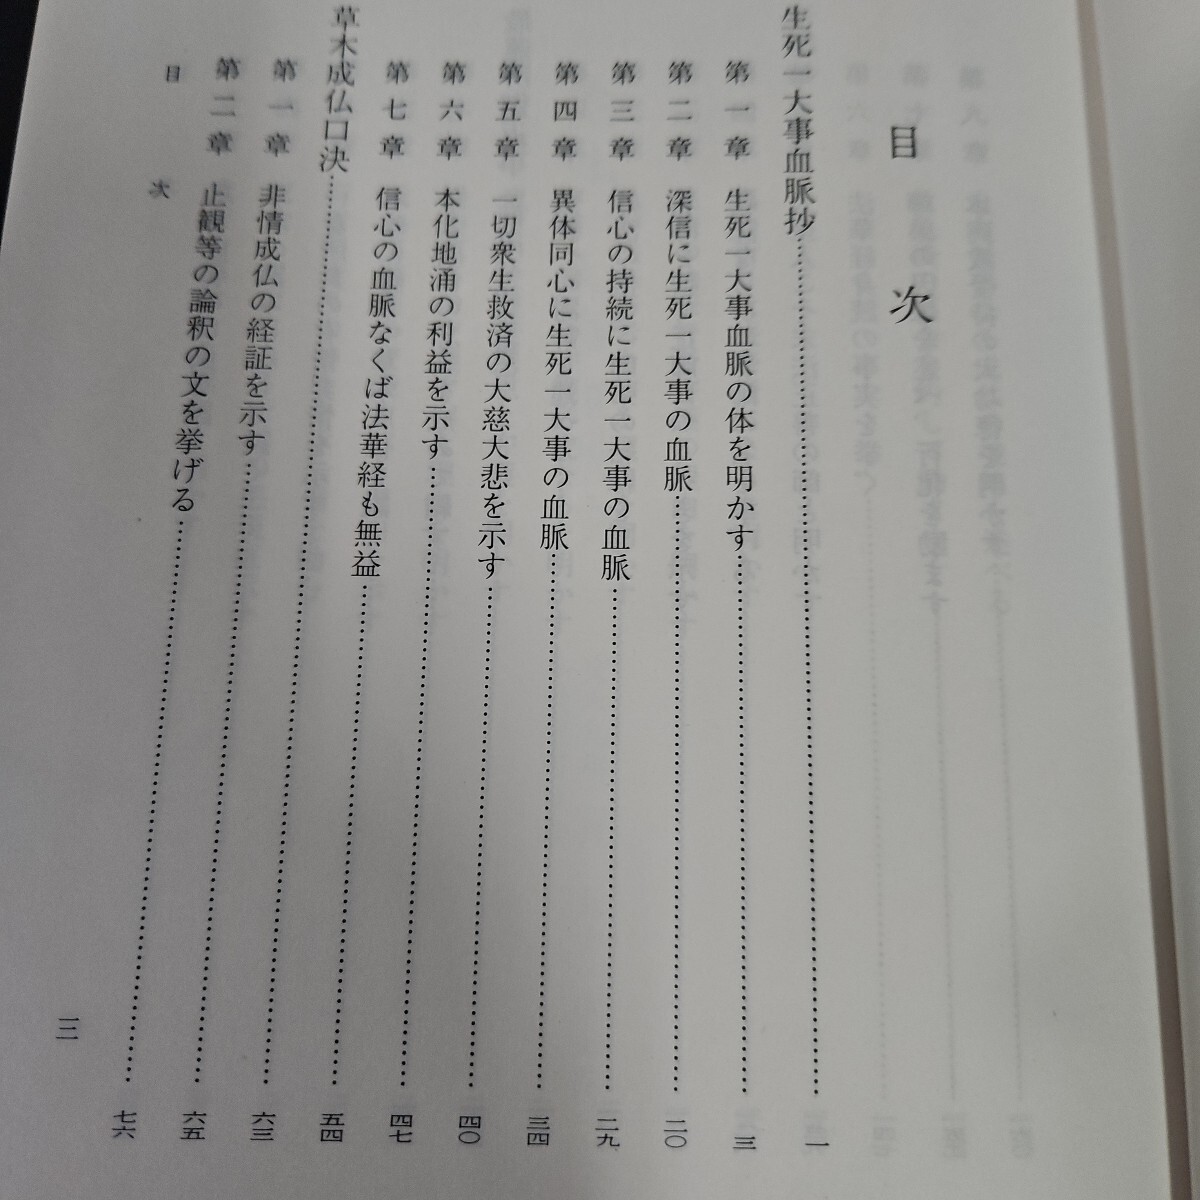 目次
生死一大事血脈抄……………………一
第一章 生死一大事血脈の体を明かす……………………三
第二章 深信に生死一大事の血脈……………………二〇
第三章 信心の持続に生死一大事の血脈……………………二九
第四章 異体同心に生死一大事の血脈……………………三四
第五章 一切衆生救済の大慈大悲を示す……………………四〇
第六章 本化地涌の利益を示す……………………四七
第七章 信心の血脈なくば法華経も無益……………………五四
草木成仏口決……………………六三
第一章 非情成仏の経証を示す……………………六五
第二章 止観等の論釈の文を挙げる……………………七六
目次
三